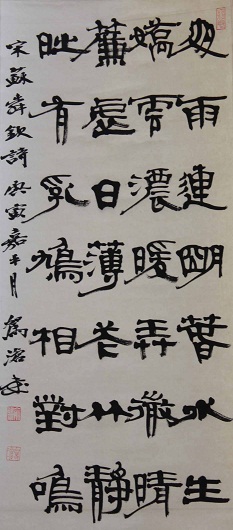 夜雨連明春水生
嬌雲濃暖弄微晴
簾虛日薄花竹靜
時有乳鳩相對鳴
宋蘇舜欽詩庚寅嘉平月